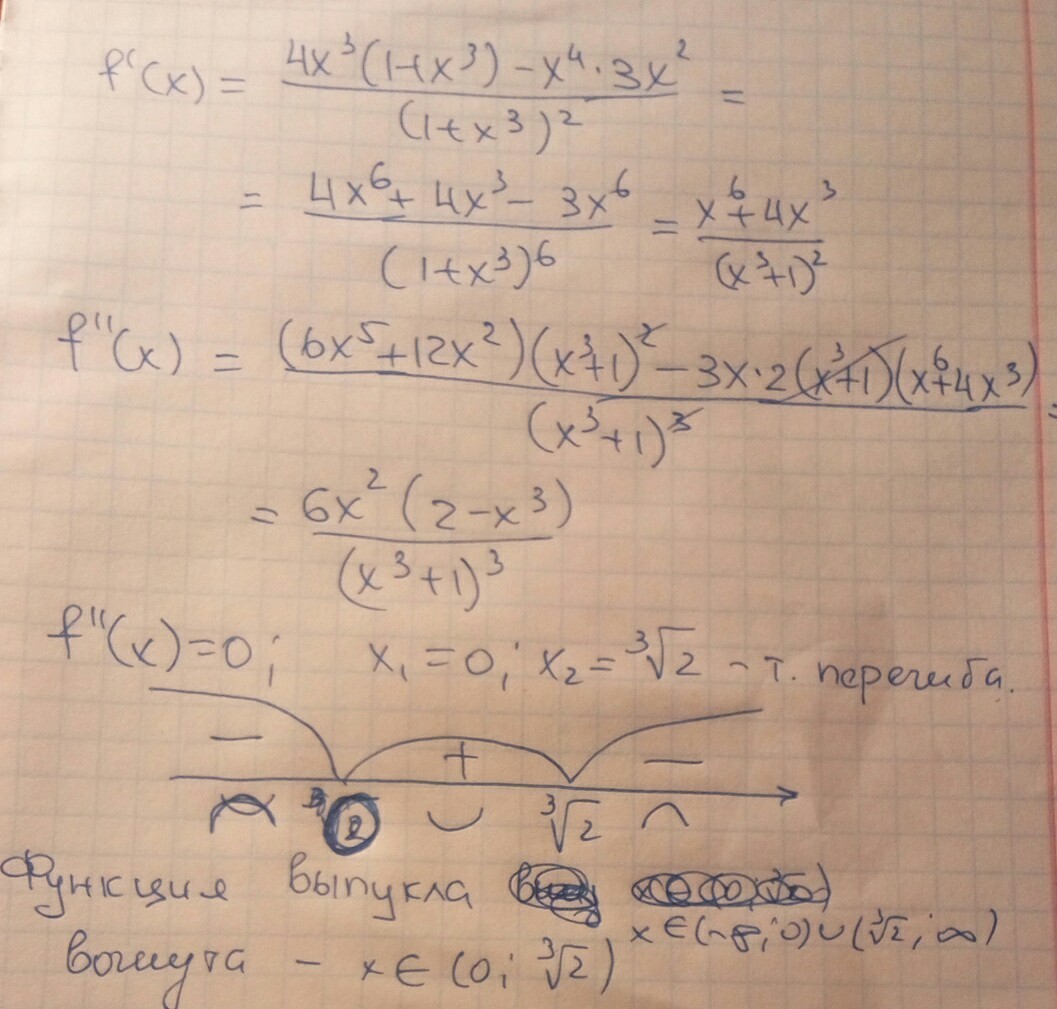 f'(x) = (4x³(1+x³) - x⁴·3x²)/(1+x³)² =
= (4x⁶ + 4x³ - 3x⁶)/(1+x³)⁶ = (x⁶+4x³)/(x³+1)²
f''(x) = ((6x⁵+12x²)(x³+1)² - 3x·2(x³+1)(x⁶+4x³))/(x³+1)³ =
= 6x²(2-x³)/(x³+1)³
f''(x)=0; x₁=0; x₂=³√2 - т. перегиба.
− + −
³√2
Функция выпукла
x∈(-∞;0)∪(³√2;∞)
вогнута - x∈(0; ³√2)